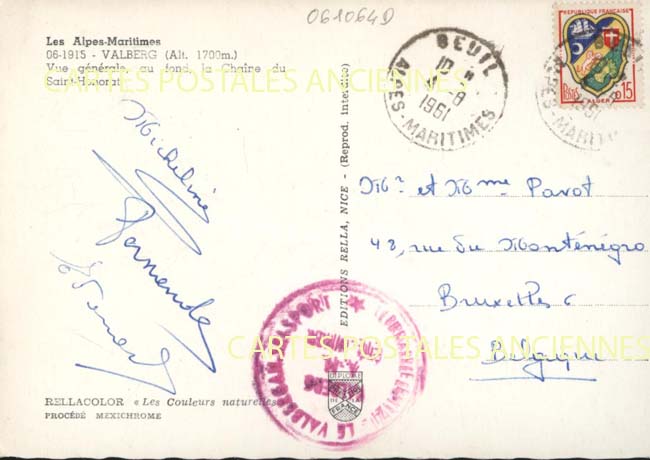 061064D
Les Alpes-Maritimes
06-1915 - VALBERG (Alt. 1700m.)
Vue générale, au fond, la Chaîne du
Saint-Honorat
CARTES POSTALES ANCIENNES
Micheline
Fernande
EDITIONS RELLA, NICE - (Reprod. interdite)
BEUIL
1961
ALPES-MARITIMES
REPUBLIQUE FRANÇAISE
Postes
0,15
ALGER
Mr et Mme Pavot
42, rue du Monténégro
Bruxelles 6
Belgique
LE VALBERG
FRANCE
CARTES POSTALES ANCIENNES
RELLACOLOR « Les Couleurs naturelles »
PROCÉDÉ MEXICHROME